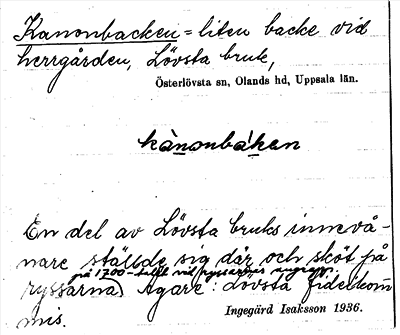 Kanonbacken = liten backe vid
herrgården, Lövsta bruk,
Österlövsta sn, Olands hd, Uppsala län.
kànonbáken
En del av Lövsta bruks innevå-
nare ställde sig där och sköt på
på 1700-talet vid ryssarnas angrepp.
ryssarna) Ägare: Lövsta fideikom-
mis.
Ingegärd Isaksson 1936.